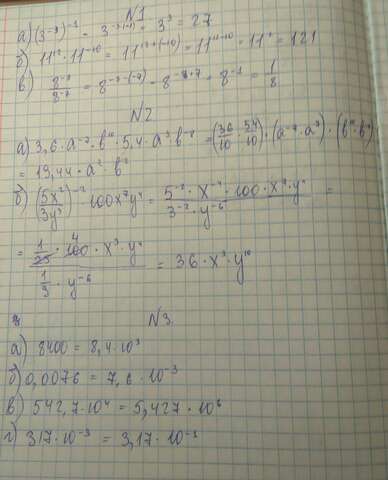 N1
а) (3⁻³)⁻¹ = 3⁻³·⁽⁻¹⁾ = 3³ = 27
б) 11¹² · 11⁻¹⁰ = 11¹²⁺⁽⁻¹⁰⁾ = 11¹²⁻¹⁰ = 11² = 121
в) 8⁻⁸/8⁻⁷ = 8⁻⁸⁻⁽⁻⁷⁾ = 8⁻⁸⁺⁷ = 8⁻¹ = 1/8
N2
а) 3,6 · a⁻⁷ · b¹⁰ · 5,4 · a⁹ · b⁻⁸ = (36/10 · 54/10) · (a⁻⁷ · a⁹) · (b¹⁰ · b⁻⁸)
= 19,44 · a² · b²
б) (5x²/3y³)⁻² · 100x⁷y⁴ = 5⁻² · x⁻⁴ · 100 · x⁷ · y⁴/3⁻² · y⁻⁶ =
= 1/25 · 100 4 · x³ · y⁴/1/9 · y⁻⁶ = 36 · x³ · y¹⁰
N3.
а) 8400 = 8,4 · 10³
б) 0,0076 = 7,6 · 10⁻³
в) 542,7 · 10⁴ = 5,427 · 10⁶
г) 317 · 10⁻³ = 3,17 · 10⁻¹